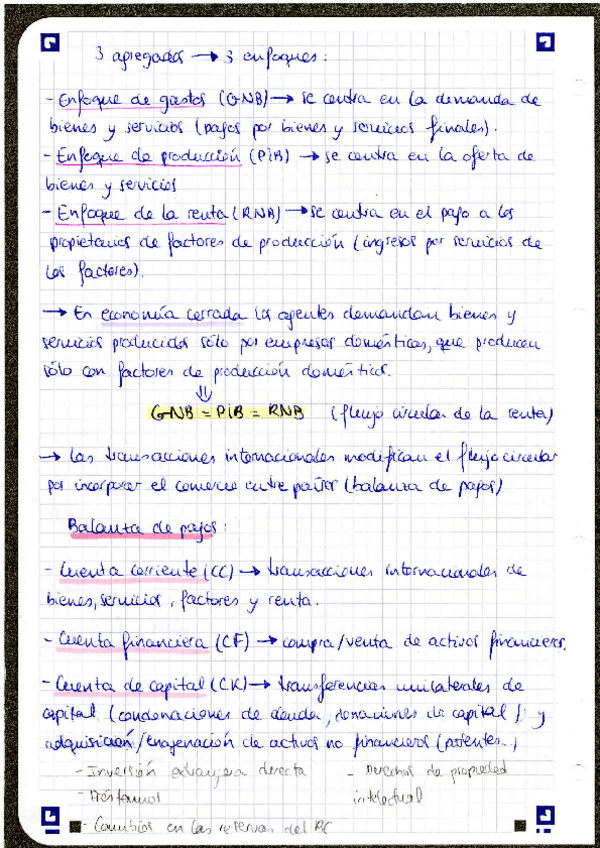 3 agregados → 3 enfoques:
- Enfoque de gastos (GNB) → se centra en la demanda de
bienes y servicios (pagos por bienes y servicios finales).
- Enfoque de producción (PiB) → se centra en la oferta de
bienes y servicios
- Enfoque de la renta (RNB) → se centra en el pago a los
propietarios de factores de producción (ingresos por servicios de
los factores).
→ En economía cerrada los agentes demandan bienes y
servicios producidos sólo por empresas domésticas, que producen
sólo con factores de producción domésticos.
⇓
GNB = PiB = RNB (flujo circular de la renta)
→ Las transacciones internacionales modifican el flujo circular
por incorporar el comercio entre países (balanza de pagos)
Balanza de pagos:
- Cuenta corriente (CC) → transacciones internacionales de
bienes, servicios, factores y renta.
- Cuenta financiera (CF) → compra/venta de activos financieros.
- Cuenta de capital (CK) → transferencias unilaterales de
capital (condonaciones de deuda, donaciones de capital); y
adquisición/enajenación de activos no financieros (patentes..)
- Inversión extranjera directa - Derechos de propiedad
- Préstamos intelectual
- Cambios en las reservas del BC